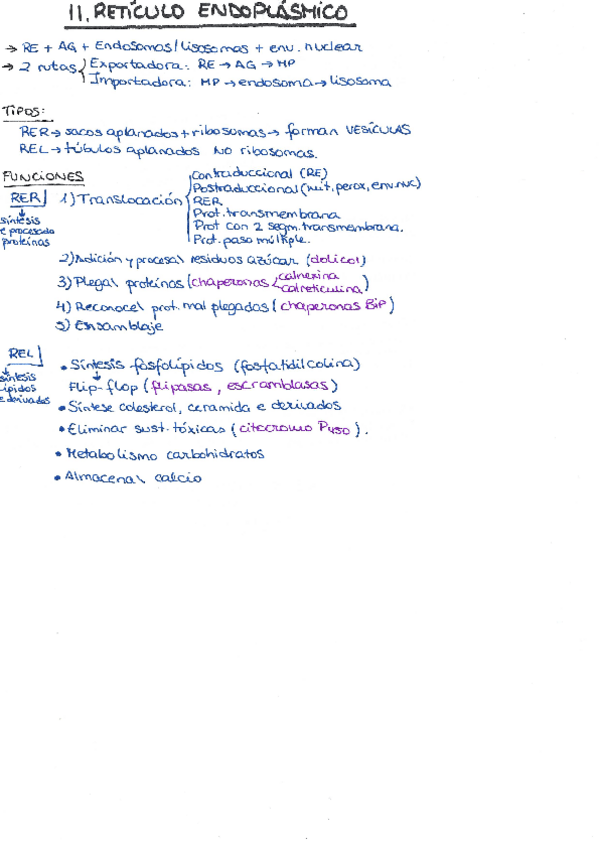 11. RETÍCULO ENDOPLÁSMICO
→ RE + AG + Endosomas/lisosomas + env. nuclear
→ 2 rutas Exportadora: RE → AG → MP
Importadora: MP → endosoma → lisosoma
TIPOS:
RER → sacos aplanados + ribosomas → forman VESÍCULAS
REL → túbulos aplanados NO ribosomas.
FUNCIONES
RER
síntesis
e procesado
proteínas
1) Translocación
Contraduccional (RE)
Postraduccional (mit, perox, env.nuc)
RER
Prot. transmembrana
Prot con 2 segm. transmembrana.
Prot. paso múltiple.
2) Adición y procesar residuos azúcar (dolicol)
3) Plegar proteínas (chaperonas calnexina
calreticulina)
4) Reconocer prot. mal plegadas (chaperonas BiP)
5) Ensamblaje
REL
síntesis
lípidos
e derivados
• Síntesis fosfolípidos (fosfatidilcolina)
Flip-flop (flipasas, escramblasas)
• Síntese colesterol, ceramida e derivados
• Eliminar sust. tóxicas (citocromo P450).
• Metabolismo carbohidratos
• Almacenar calcio